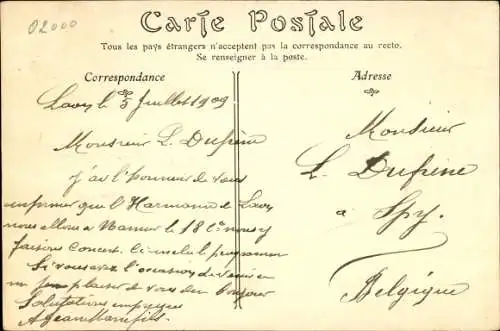 02000
Carte Postale
Tous les pays étrangers n'acceptent pas la correspondance au recto.
Se renseigner à la poste.
Correspondance
Adresse
Laon, le 5 Juillet 1909
Monsieur L. Dufrène
J'ai l'honneur de vous
informer que l'Harmonie de Laon
nous allons à Namur le 18 Ct nous y
faisons Concert. Ci-inclus programme
Si vous avez l'occasion de venir en
un plaisir de vous dire bonjour
Salutations
Monsieur
L. Dufrène
à Spy.
Belgique